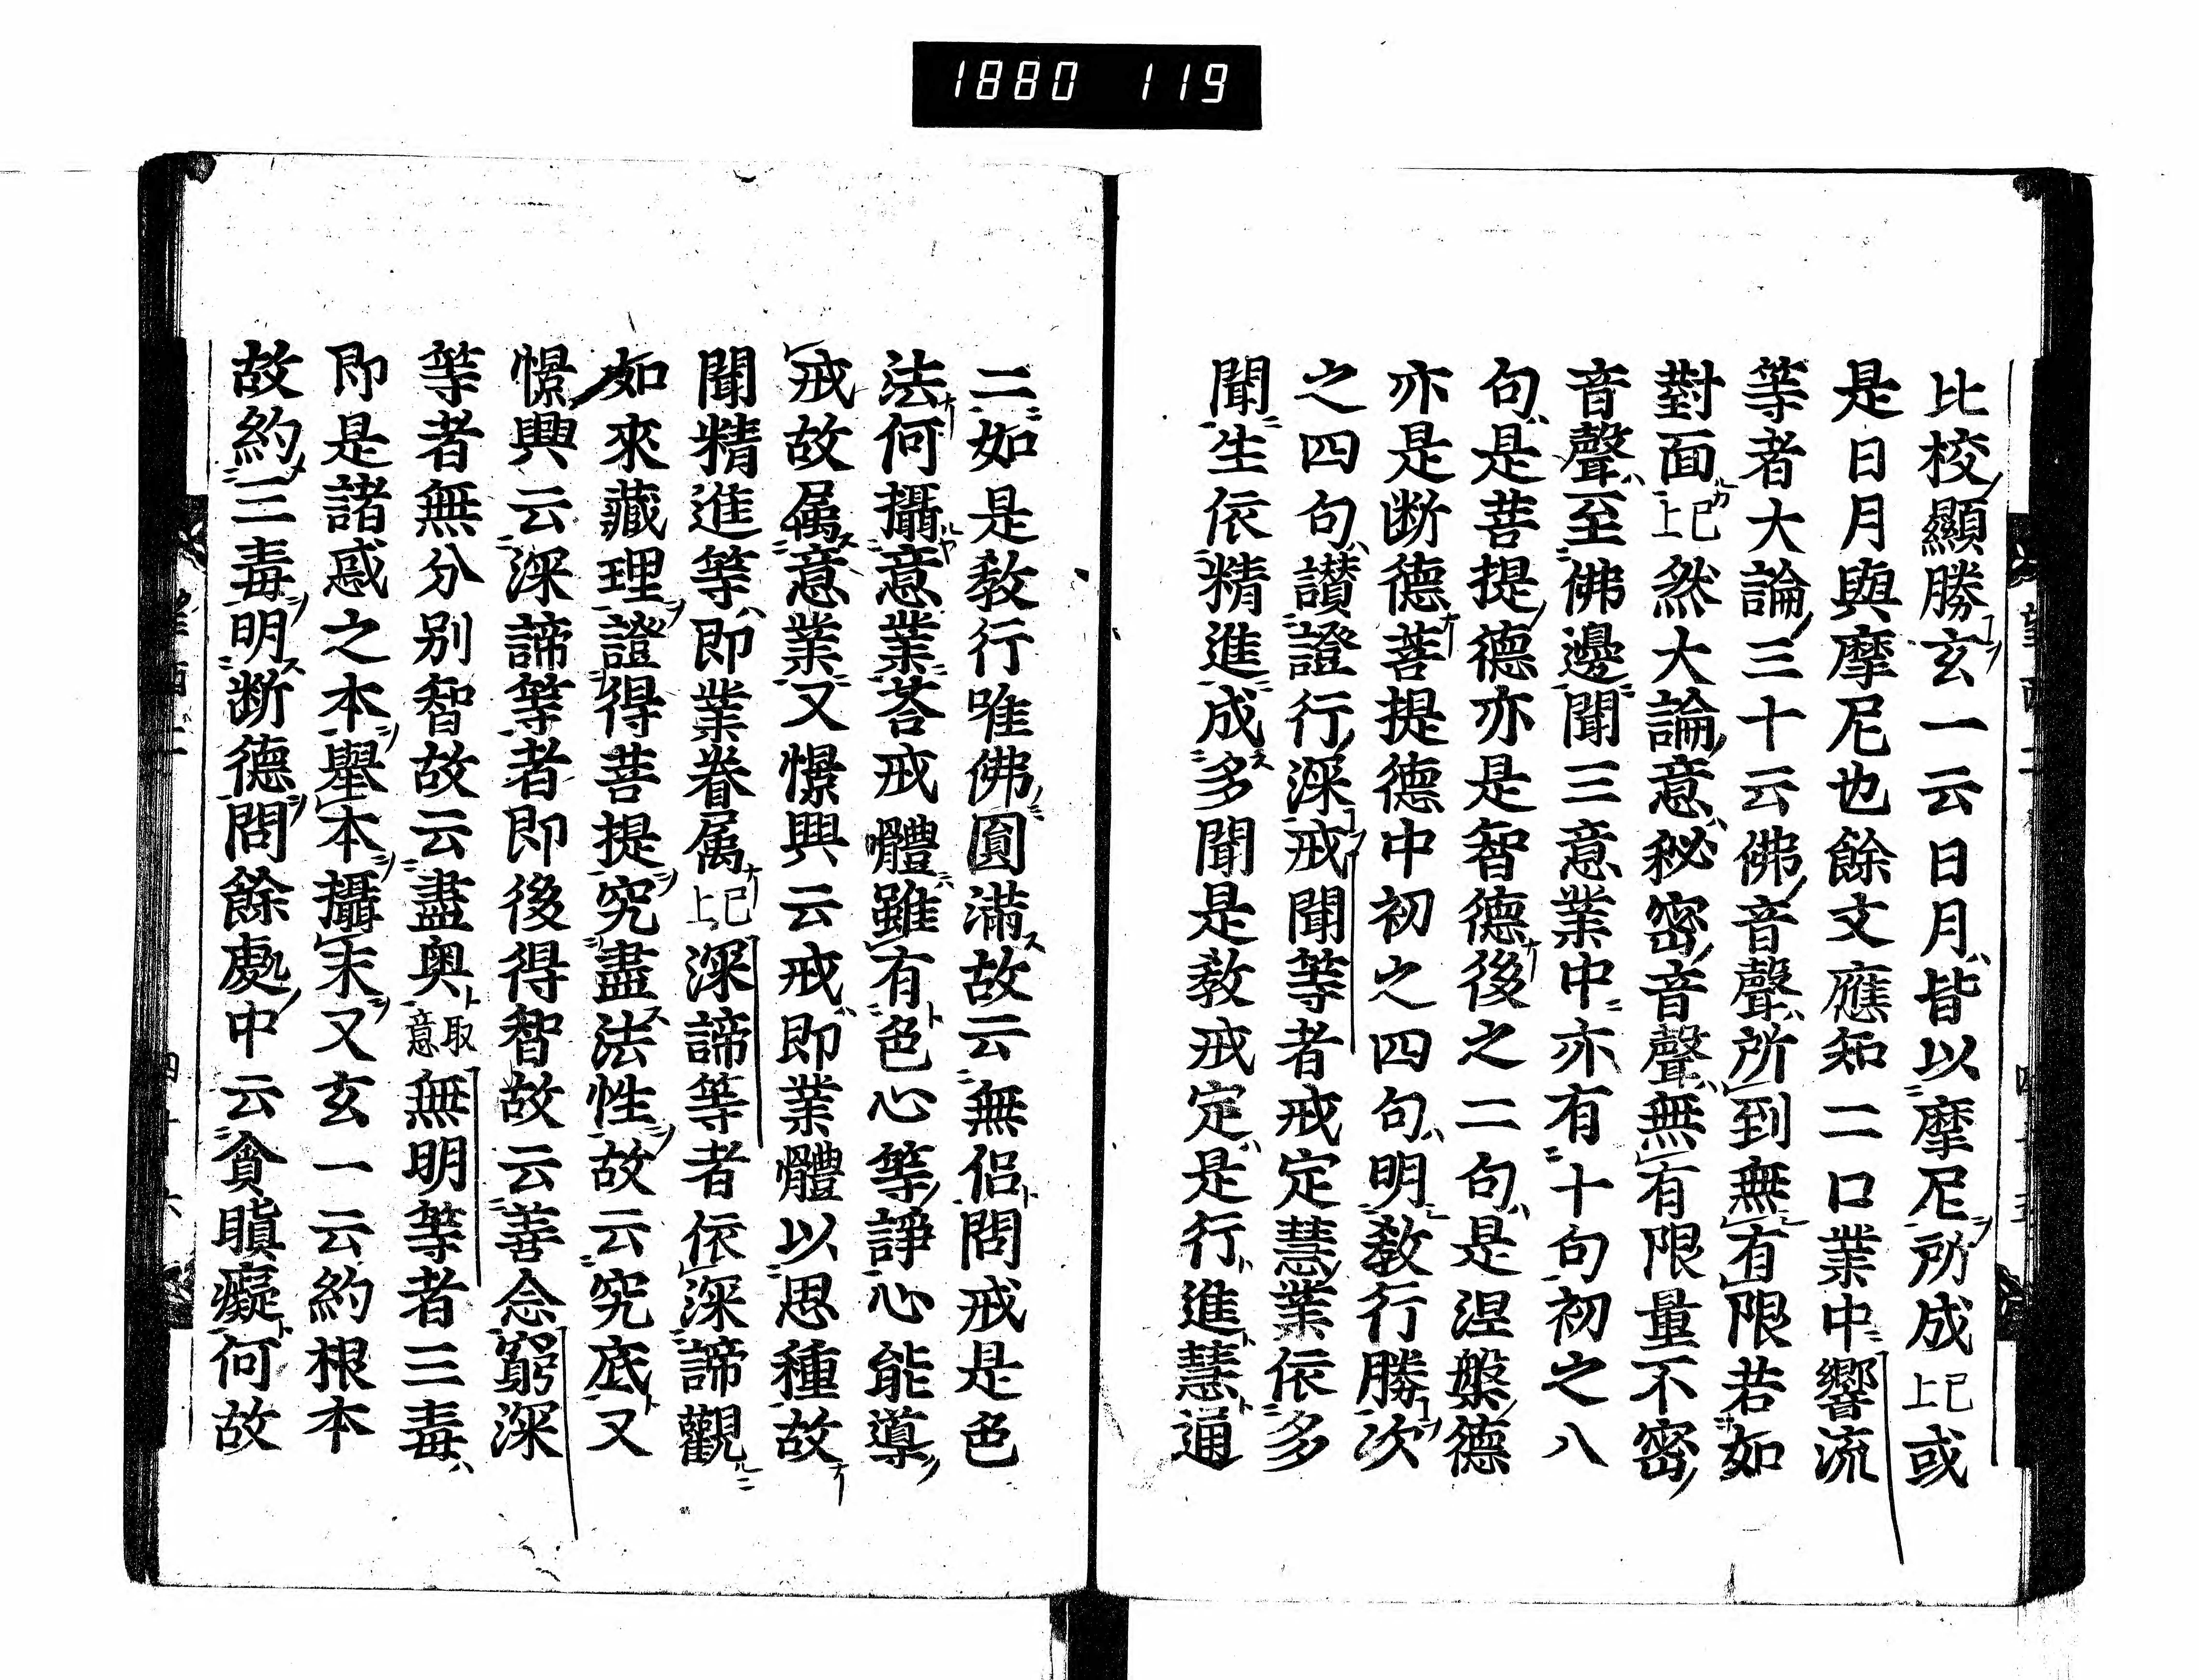 1880 119
比校顯勝玄一云日月皆以摩尼所成已上或
是日月與摩尼也餘文應知二口業中響流
等者大論三十云佛音聲所到無有限若如
對面已上然大論意秘密音聲無有限量不密
音聲至佛邊聞三意業中亦有十句初之八
句是菩提德亦是智德後之二句是涅槃德
亦是断德菩提德中初之四句明教行勝次
之四句讃證行深戒聞等者戒定慧業依多
聞生依精進成多聞是教戒定是行進慧通
二如是教行唯佛圓滿故云無侶問戒是色
法何攝意業荅戒體雖有色心等諍心能導
戒故属意業又憬興云戒即業體以思種故
聞精進等即業眷属已上深諦等者依深諦觀
如來藏理證得菩提究盡法性故云究底又
憬興云深諦等者即後得智故云善念窮深
等者無分別智故云盡奥取意無明等者三毒
即是諸惑之本舉本攝末又玄一云約根本
故約三毒明断德問餘處中云貪瞋癡何故